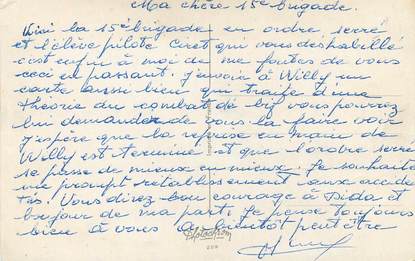 Ma chère 15e brigade.
Voici la 15e brigade en ordre serré
et l'élève pilote Ciret qui vous deshabillé
c'est enfin à moi de me foutes de vous
ceci en passant. J'envoie à Willy un
carte aussi bien qui traite d'une
theorie du combat de bif vous pourrez
lui demander de vous la faire voir
J'espère que la reprise en main de
Willy est terminé et que l'ordre serré
se passe de mieux en mieux. Je souhaite
une prompt retablissement aux accide
tés. Vous direz bon courage à Dida et
bonjour de ma part. Je pense toujours
bien à vous A bientôt peut être
Photochrom